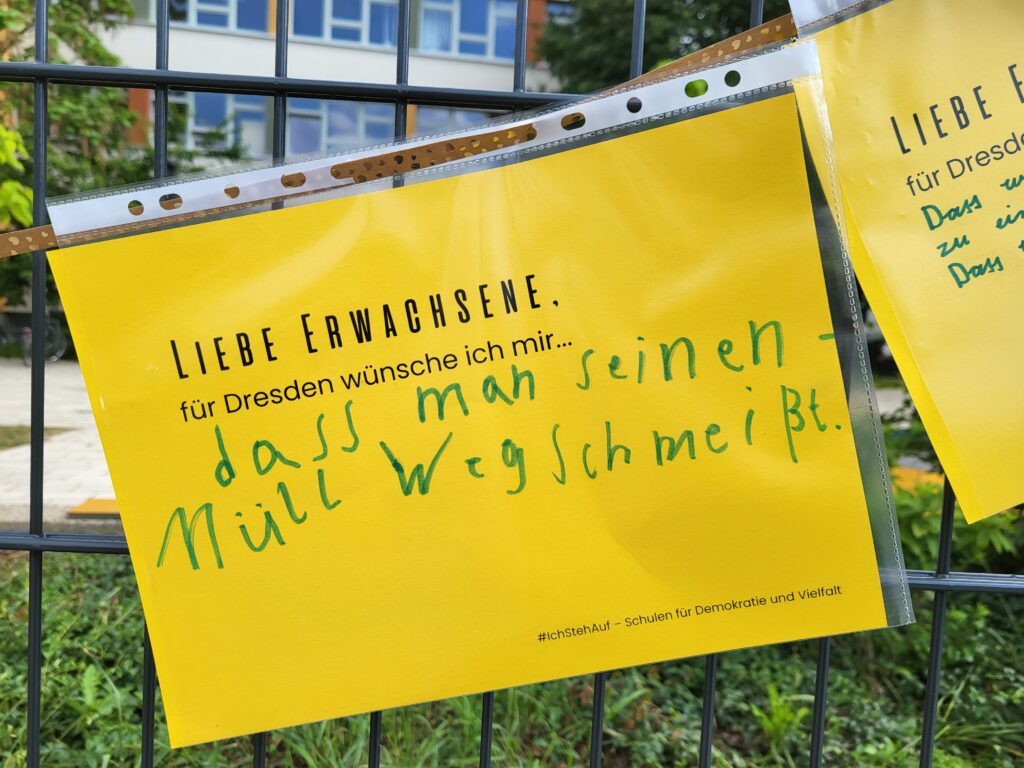 LIEBE ERWACHSENE,
für Dresden wünsche ich mir...
dass man seinen -
Müll wegschmeißt.
#IchStehAuf – Schulen für Demokratie und Vielfalt
LIEBE
für
Dass
zu
Dass